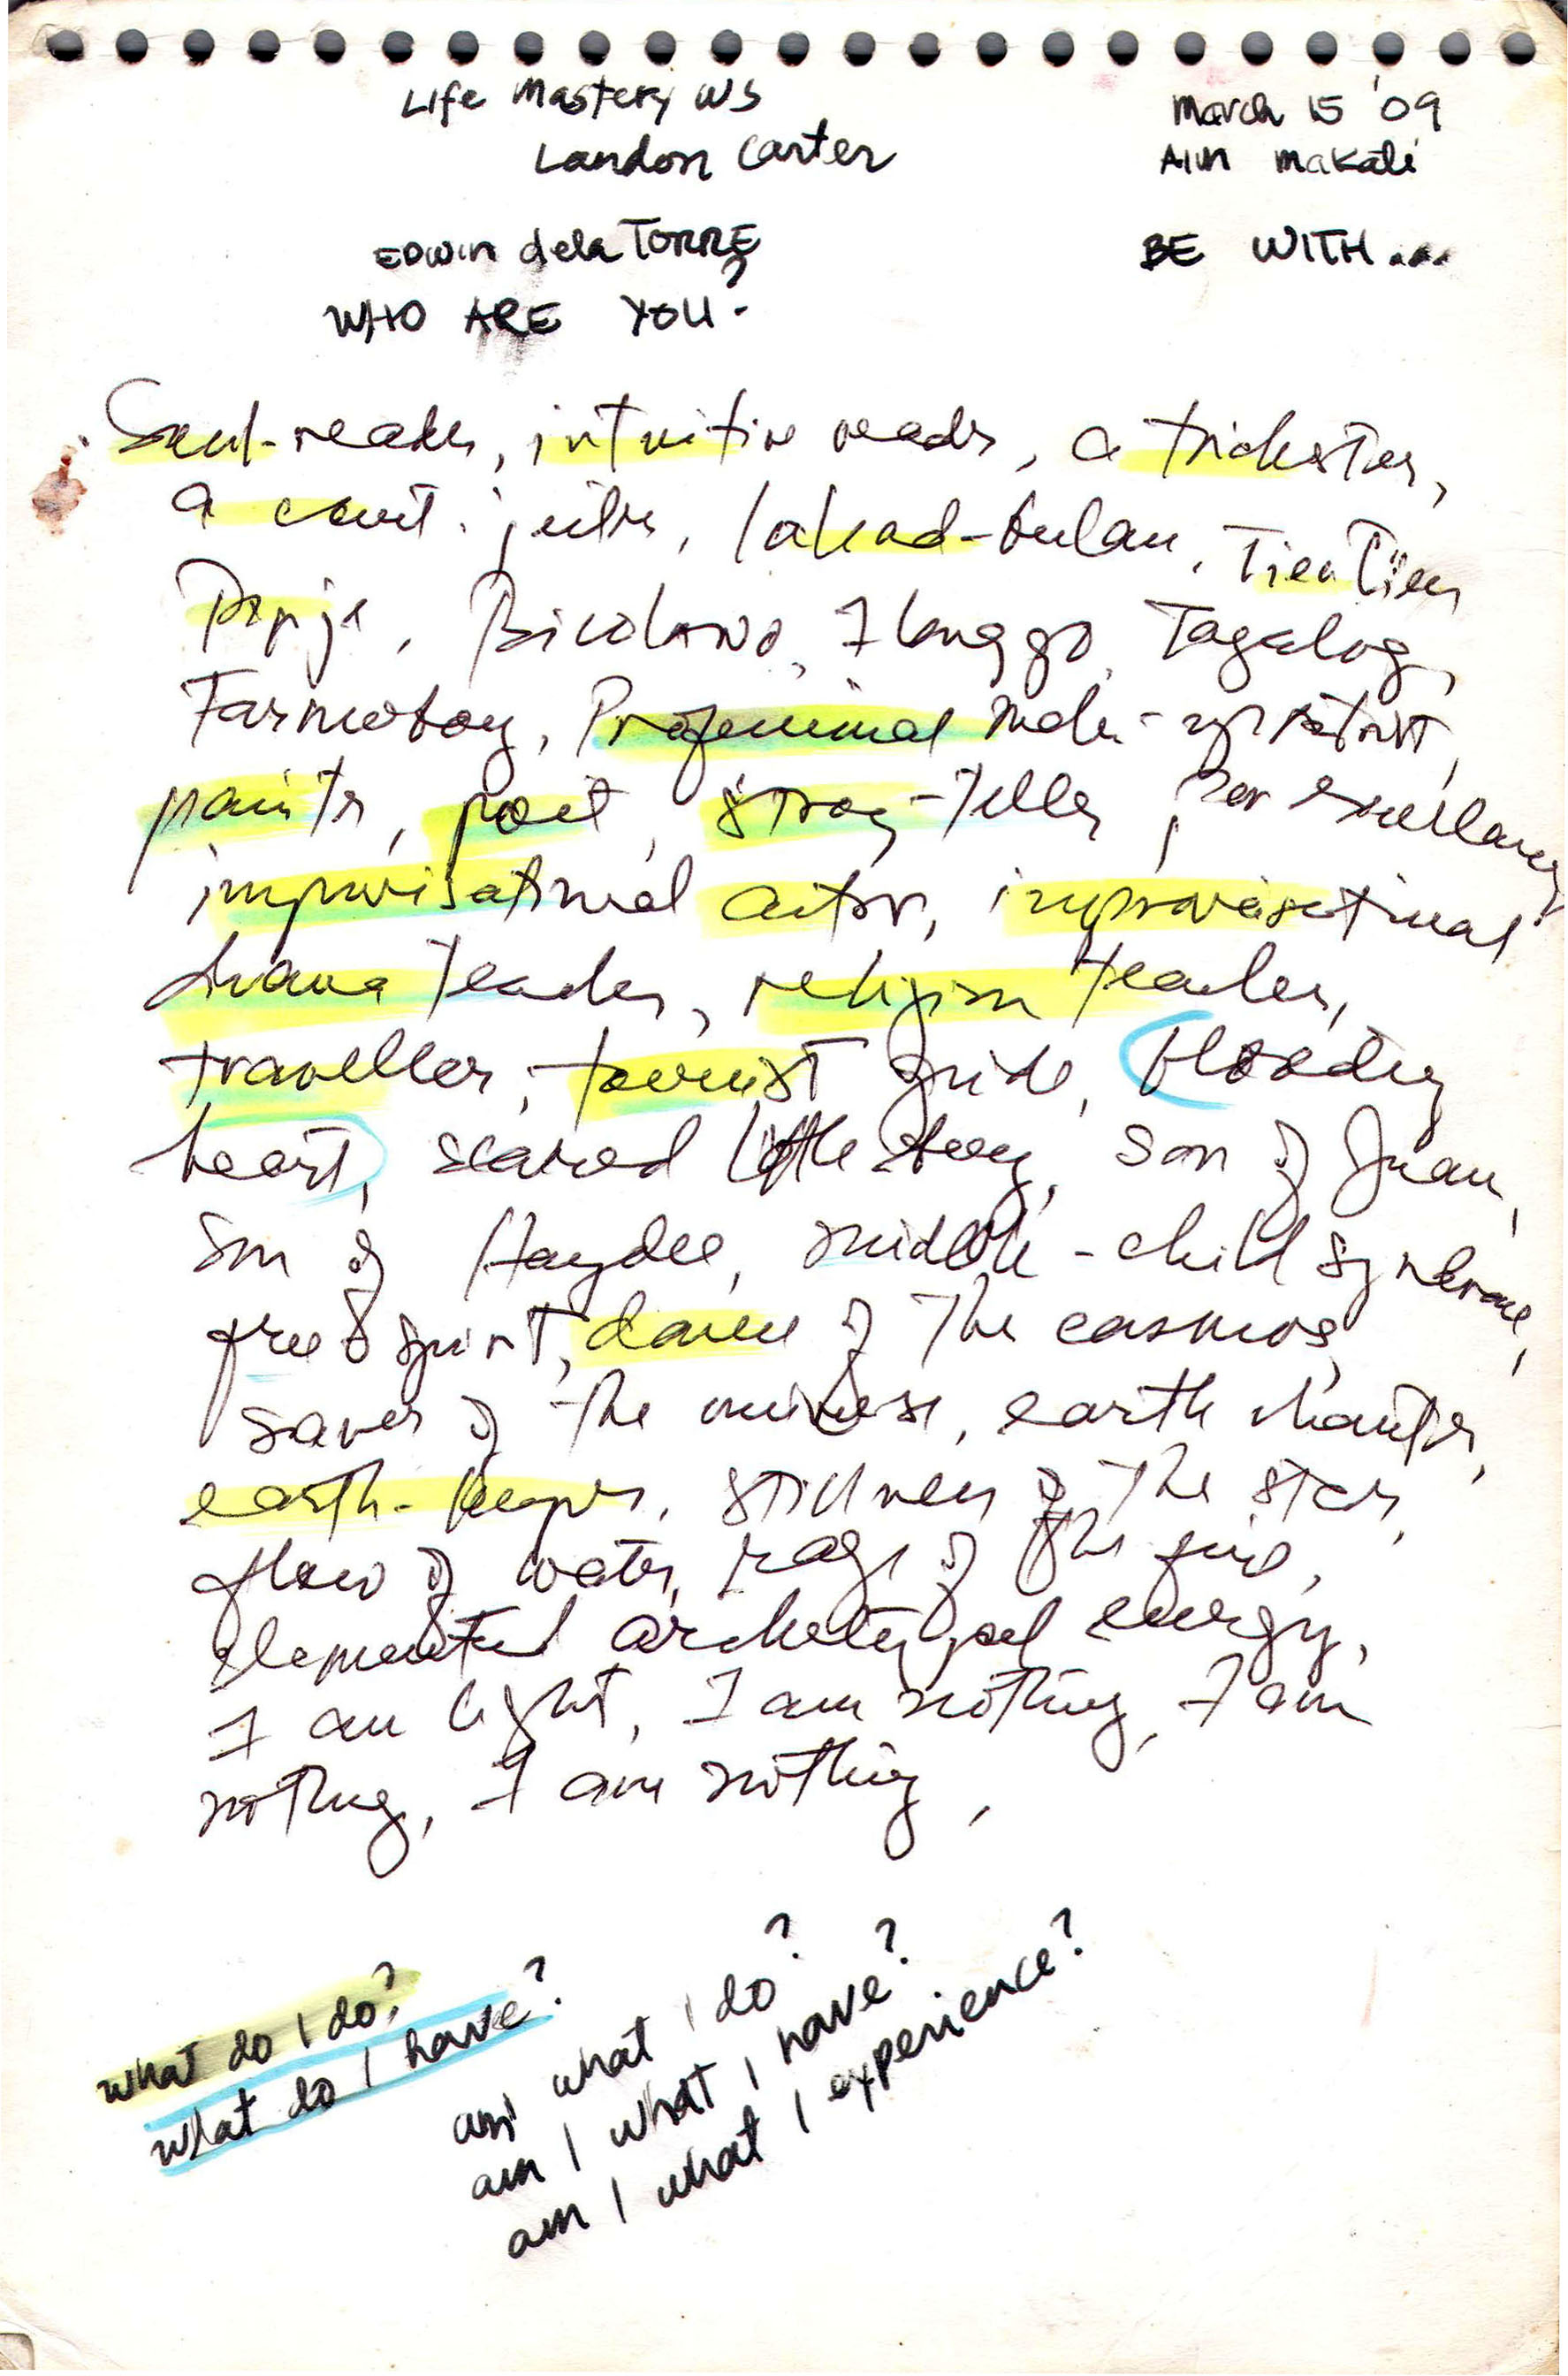 Life Mastery WS
Landon Carter
March 15 '09
AIM Makati
EDWIN dela TORRE
BE WITH...
WHO ARE YOU?
Soul-reader, intuitive reader, a trickster,
a court-jester, lakad-bulan, Tien Tien
Popije, Bicolano, Ilonggo, Tagalog,
Farmerboy, Professional make-up artist,
painter, poet, story-teller, par excellance,
improvisational actor, improvisational
drama teacher, religion teacher,
traveller, tourist guide, bloody
heart, scared little boy, son of Juan,
son of Haydee, middle-child syndrome,
free spirit, dance of the cosmos,
saver of the universe, earth chanter,
earth-keeper, stillness of the star,
flow of water, rage of the fire,
elemental archetypal energy,
I am light, I am nothing, I am
nothing, I am nothing,
what do I do?
what do I have?
am what I do?
am I what I have?
am I what I experience?